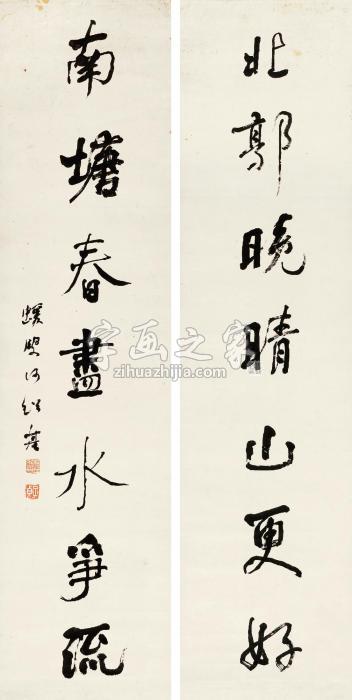 北郭曉晴山更好
南塘春盡水爭流
蝯叟何紹基
字画之家
zihuazhijia.com